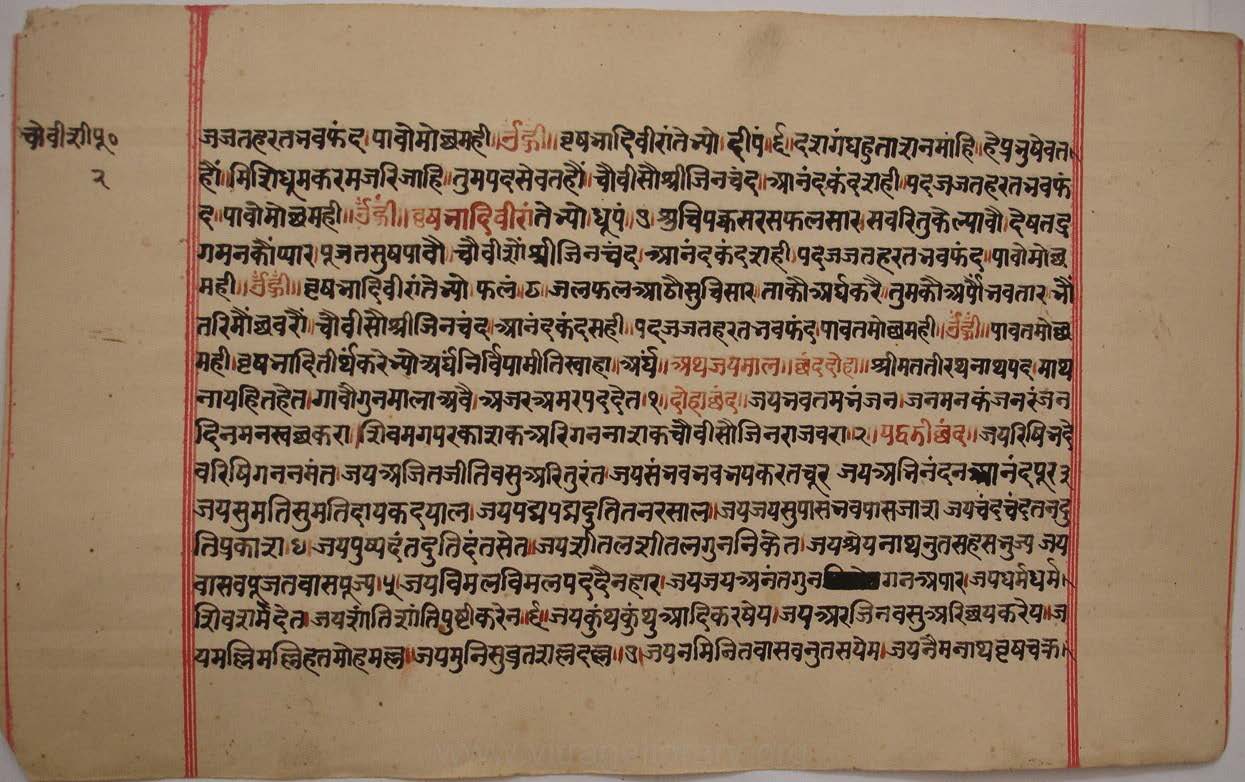 चोवीशीपू०
२
जजतहरतभवफंद।पावोमोछमही।।ॐह्रीं।।वृषभादिवीरांतेभ्यो।दीपं।६।दशगंधहुताशनमांहि।हेप्रभुषेवत।
हौं।मिशिधूमकरमजरिजाहि।तुमपदसेवतहौं।चौवीसौंश्रीजिनचंद।आनंदकंदशही।पदजजतहरतभवफं
द।पावोमोछमही।।ॐह्रीं।।वृषभादिवीरांतेभ्यो।धूपं।७।शुचिपक्कसरसफलसार।सवरितुकेल्यावौ।देषतद्र
गमनकौंप्यार।पूजतसुषपावौ।चौवीशौंश्रीजिनचंद।आनंदकंदशही।पदजजतहरतभवफंद।पावोमोछ
मही।।ॐह्रीं।।वृषभादिवीरांतेभ्यो।फलं।८।जलफलआठौसुचिसार।ताकौअर्घकरै।तुमकौअर्पौंभवतार।भौ
तरिमौंछवरौं।चौवीसौश्रीजिनचंद।आनंदकंदसही।पदजजतहरतभवफंद।पावतमोछमही।।ॐह्रीं।।पावतमोछ
मही।वृषभादितीर्थंकरेभ्योअर्घंनिर्विपामीतिस्वाहा।अर्घं।।अथजयमाल।।छंददोहा।।श्रीमततीरथनाथपद।माथ
नायहितहेत।गावौगुनमालाअवै।अजरअमरपददेत।१।दोहाछंद।।जयभवतमभंजन।जनमनकंजनरंजन
दिनमनस्वछकरा।शिवमगपरकाशकअरिगननाशकचौवीसौजिनराजवरा।२।पद्धडीछंद।जयरिषिभदे
वरिषिगननमंत।जयअजितजीतिवसुअरितुरंत।जयसंभवभवभयकरतचूर जयअभिनंदनआनंदपूर३
जयसुमतिसुमतिदायकदयाल।जयपद्मपद्मदुतितनरसाल।जयजयसुपासभवपासनाश।जयचंदचंदतनदु
तिप्रकाश।४।जयपुष्पदंतदुतिदंतसेत।जयशीतलशीतलगुननिकेत।जयश्रेयनाथनुतसहसभुज्य।जय
वासवपूजतवासपूज्य।५।जयविमलविमलपददैनहार।जयजयअनंतगुनगनअपार।जयधर्मधर्म।
शिवशर्मदेत।जयशांतिशांतिपुष्टीकरेन।६।जयकुंथकुंथुआदिकरषेय।जयअरजिनवसुअरिछयकरेय।ज
यमल्लिमल्लिहतमोहमल्ल।जयमुनिसुव्रतशल्लदल्ल।७।जयनमिनितवासवनुतसयेम।जयनेमनाथवृषचक्र।